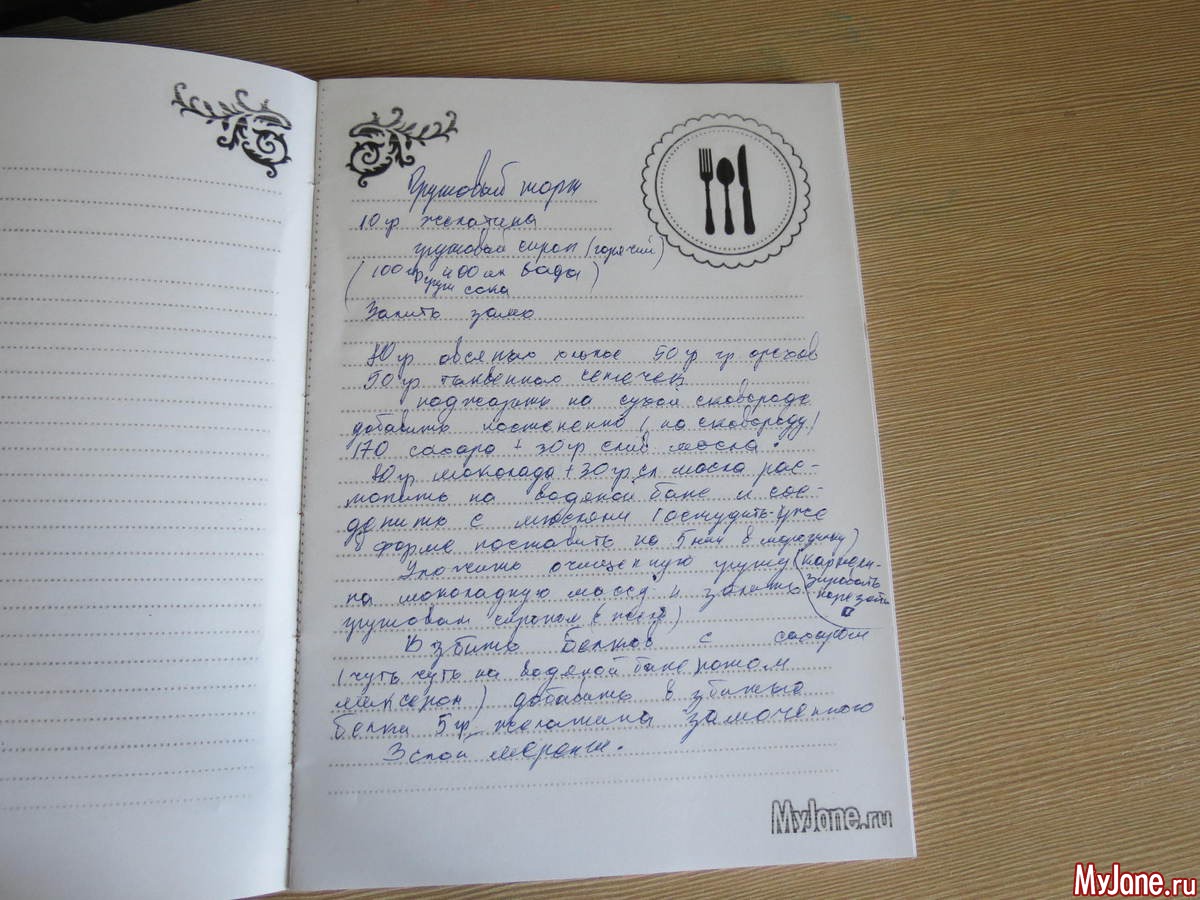 Грушовый торт
10 гр желатина
грушовый сироп (горячий)
(100 гр 400 мл вода)
груш сока
Залить
80 гр овсяных хлопьев 50 гр гр орехов
50 гр тыквенных семечек
поджарить на сухой сковороде
добавить постепенно (на сковороду)
170 сахара + 30 гр слив масла.
80 гр шоколада + 30 гр сл масла рас-
топить на водяной бане и сое-
денить с мюслями (остудить уже
в форме поставить на 5 мин в морозилку)
Уложить очищенную грушу (карамели-
зировать
нарезать)
на шоколадную массу и залить
грушовым сиропом (желе)
Взбить белков с сахаром
(чуть чуть на водяной бане потом
миксером) добавить в збитые
белки 5 гр желатина замоченного
3 слой меренги.
MyJane.ru
MyJane.ru